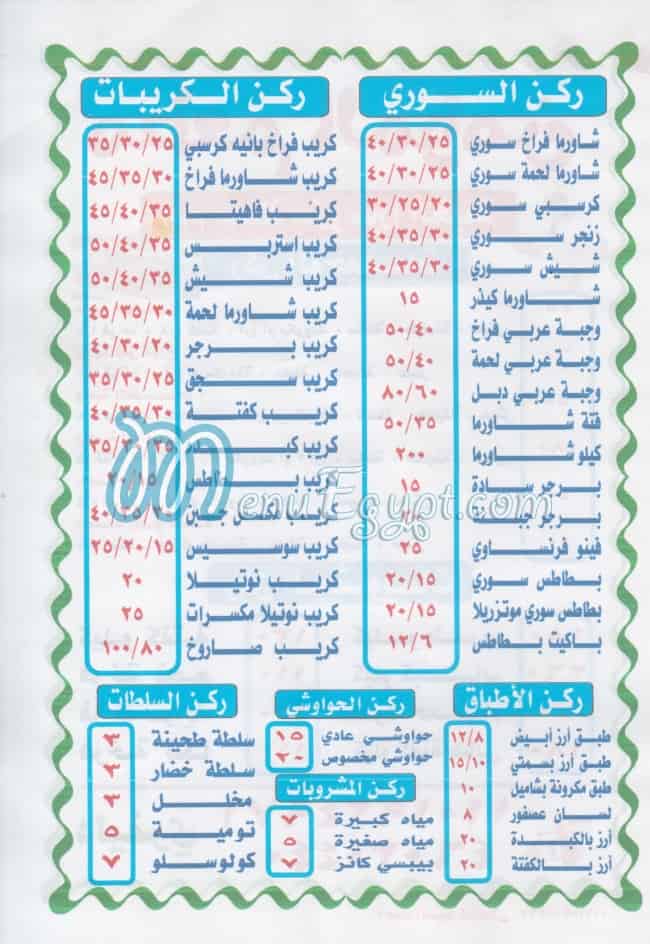 ركن السوري
شاورما فراخ سوري ٤٠/٣٠/٢٥
شاورما لحمة سوري ٤٠/٣٠/٢٥
كرسبي سوري ٣٠/٢٥/٢٠
زنجر سوري ٤٠/٣٥/٣٠
شيش سوري ٤٠/٣٥/٣٠
شاورما كيذر ١٥
وجبة عربي فراخ ٥٠/٤٠
وجبة عربي لحمة ٥٠/٤٠
وجبة عربي دبل ٨٠/٦٠
فتة شاورما ٥٠/٣٥
كيلو شاورما ٢٠٠
برجر سادة ١٥
برجر
فينو فرنساوي ٢٥
بطاطس سوري ٢٠/١٥
بطاطس سوري موتزريلا ٢٠/١٥
باكيت بطاطس ١٢/٦
ركن الكريبات
كريب فراخ بانيه كرسبي ٣٥/٣٠/٢٥
كريب شاورما فراخ ٤٥/٣٥/٣٠
كريب فاهيتا ٤٥/٤٠/٣٥
كريب استربس ٥٠/٤٠/٣٥
كريب شيش ٥٠/٤٠/٣٥
كريب شاورما لحمة ٤٥/٣٥/٣٠
كريب برجر ٤٠/٣٠/٢٠
كريب سجق ٣٥/٣٠/٢٥
كريب كفتة ٤٠/٣٥/٣٠
كريب
كريب بطاطس ٢٠/١٥
كريب ٤٠/٣٥/٣٠
كريب سوسيس ٢٥/٢٠/١٥
كريب نوتيلا ٢٠
كريب نوتيلا مكسرات ٢٥
كريب صاروخ ١٠٠/٨٠
MenuEgypt.com
ركن الأطباق
طبق أرز أبيض ١٢/٨
طبق أرز بسمتي ١٥/١٠
طبق مكرونة بشاميل ١٠
لسان عصفور ٨
أرز بالكبدة ٢٠
أرز بالكفتة ٢٠
ركن الحواوشي
حواوشي عادي ١٥
حواوشي مخصوص ٢٠
ركن المشروبات
مياه كبيرة ٧
مياه صغيرة ٥
بيبسي كانز ٧
ركن السلطات
سلطة طحينة ٣
سلطة خضار ٣
مخلل ٣
تومية ٥
كولوسلو ٧